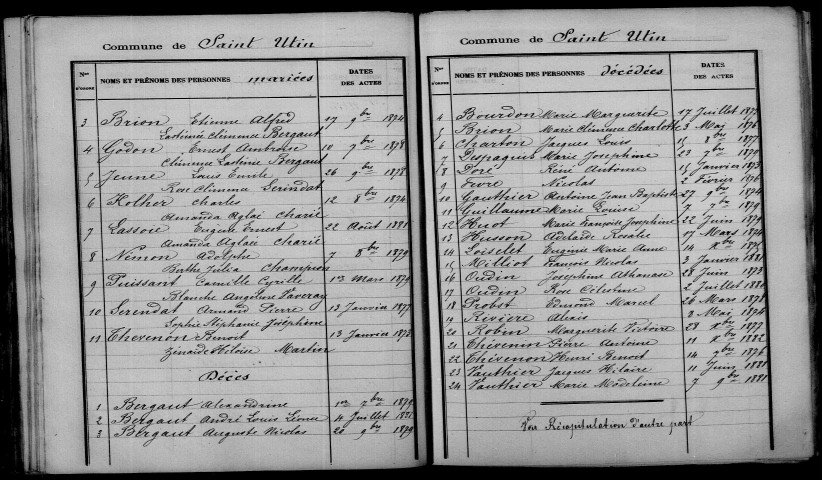 Commune de Saint Utin
Nos D'ORDRE
NOMS ET PRÉNOMS DES PERSONNES mariées
DATES DES ACTES
3 Brion Etienne Alfred 17 9bre 1874
Clémence Bergaut
4 Godon Ernest Ambroise 10 7bre 1878
Bergaut
5 Jenne Louis Emile 26 9bre 1878
Rose Serindat
6 Kolher Charles 12 8bre 1874
Amanda Aglaé Charié
7 Lassois Eugène Ernest 22 Août 1881
Amanda Aglaé Charié
8 Adolphe 7 8bre 1879
Berthe Julia Champion
9 Puissant Camille Cyrille 1er Mars 1879
Blanche Angéline
10 Serendat Armand Pierre 13 Janvier 1877
Sophie Stéphanie Joséphine
11 Thévenon Benoit 13 Janvier 1873
Zénaïde Héloïse Martin
Décès
1 Bergaut Alexandrine 1er 7bre 1879
2 Bergaut André Louis 4 Juillet
3 Bergaut Auguste Nicolas 20 9bre 1879
Commune de Saint Utin
Nos D'ORDRE
NOMS ET PRÉNOMS DES PERSONNES décédées
DATES DES ACTES
4 Bourdon Marie Marguerite 17 Juillet
5 Brion Marie Clémence Charlotte 3 Mai 1876
6 Charton Jacques Louis 15 8bre 1877
7 Despaquis Marie Joséphine 23 7bre
8 Doré René Antoine 15 Janvier 1873
9 Fèvre Nicolas 2 Février 1876
10 Gauthier Antoine Jean Baptiste 27 9bre 1874
11 Guillaume Marie Louise 7 7bre 1879
12 Huot Marie Françoise Joséphine 22 Juin 1879
13 Husson Adélaïde Rosalie 17 Mars 1874
14 Loiselet Eugénie Marie Anne 14 Xbre
15 Milliot François Nicolas 3 Janvier 1881
16 Oudin Joséphine Athanase 28 Juin 1873
17 Oudin Rose Célestine 2 Juillet
18 Probst Edmond Marcel 26 Mars 1878
19 Rivière Alexis 8 Mai 1874
20 Robin Marguerite Victoire 28 Xbre 1877
21 Thévenin Pierre Antoine 11 Xbre 1882
22 Thévenon Henri Benoit 14 9bre 1876
23 Vauthier Jacques Hilaire 11 Juin 1881
24 Vauthier Marie Madeleine 7 9bre 1881
Récapitulation d'autre part